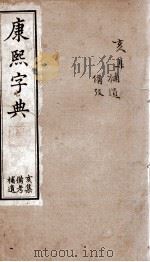 亥集補遺
備攷
康熙字典
亥集
備考
補遺